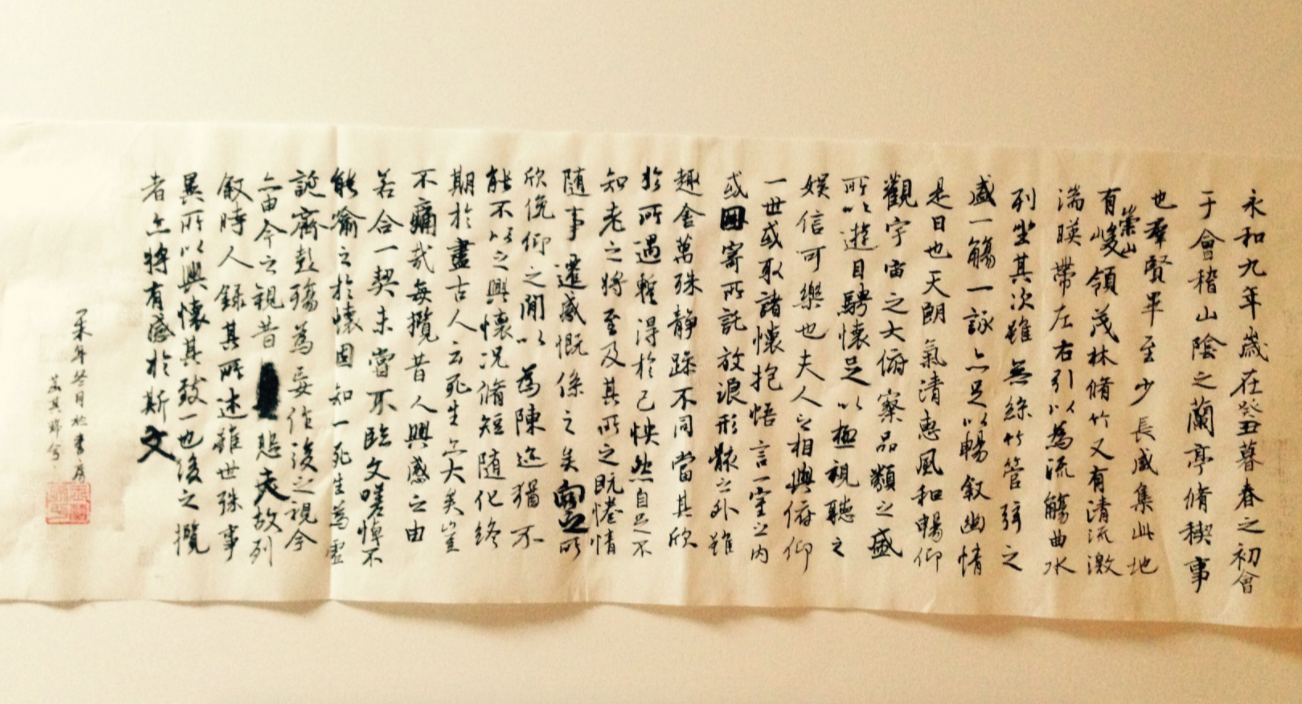 永和九年歲在癸丑暮春之初會
于會稽山陰之蘭亭脩稧事
也羣賢畢至少長咸集此地
有崇山峻領茂林脩竹又有清流激
湍暎帶左右引以為流觴曲水
列坐其次雖無絲竹管弦之
盛一觴一詠亦足以暢叙幽情
是日也天朗氣清惠風和暢仰
觀宇宙之大俯察品類之盛
所以遊目騁懷足以極視聽之
娛信可樂也夫人之相與俯仰
一世或取諸懷抱悟言一室之内
或因寄所託放浪形骸之外雖
趣舍萬殊靜躁不同當其欣
於所遇暫得於己怏然自足不
知老之將至及其所之既惓情
隨事遷感慨係之矣向之所
欣俛仰之閒以為陳迹猶不
能不以之興懷况脩短隨化終
期於盡古人云死生亦大矣豈
不痛哉每攬昔人興感之由
若合一契未嘗不臨文嗟悼不
能喻之於懷固知一死生為虛
誕齊彭殤為妄作後之視今
亦由今之視昔悲夫故列
叙時人錄其所述雖世殊事
異所以興懷其致一也後之攬
者亦將有感於斯文